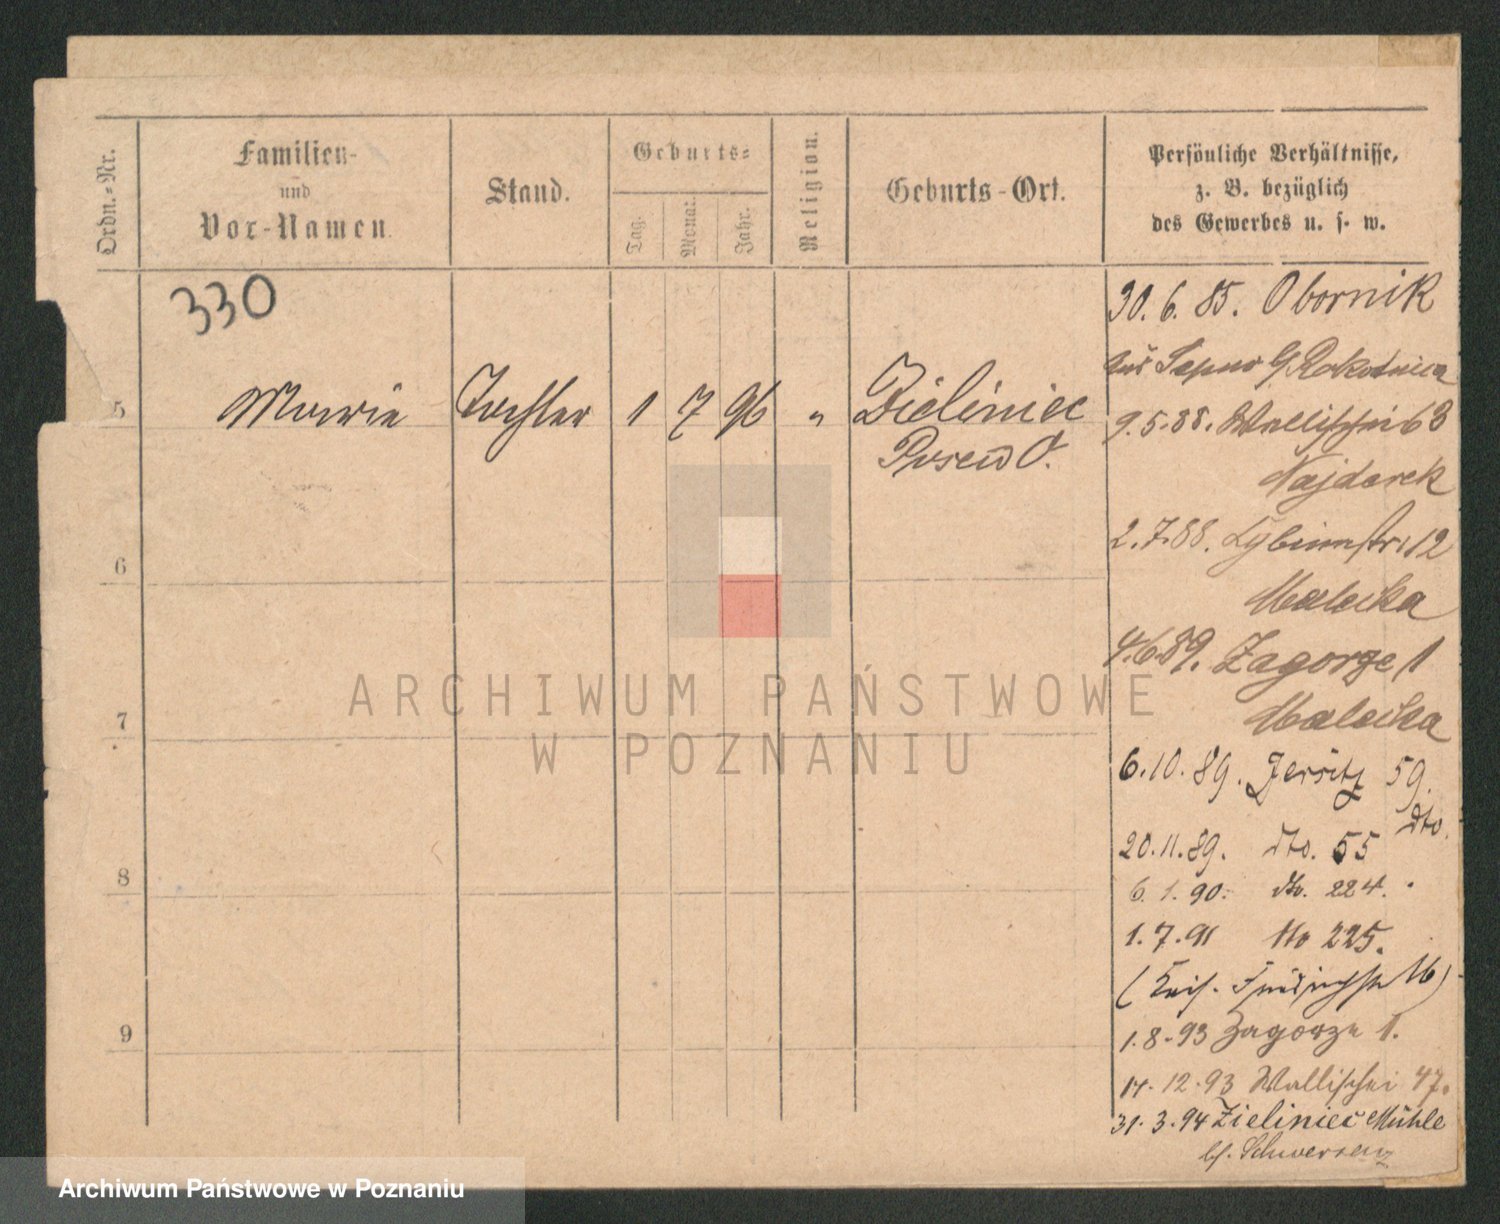 Ordn.-Nr.
Familien-
und
Vor-Namen.
Stand.
Geburts-
Tag.
Monat.
Jahr.
Religion.
Geburts-Ort.
Persönliche Verhältnisse,
z. B. bezüglich
des Gewerbes u. s. w.
330
5 Marie Tochter 1 7 96 " Zieliniec
Posen O.
6
7
8
9
30. 6. 85. Obornik
aus Rokotnica
9. 5. 88. Wallischei 63
Najdorek
2. 7. 88. Cybinastr. 12
Malecka
4. 6. 89. Zagorze 1
Malecka
6. 10. 89. Jersitz 59.
dto.
20. 11. 89. dto. 55
6. 1. 90. dto. 224.
1. 7. 91 dto 225.
16)
1. 8. 93 Zagorze 1.
14. 12. 93 Wallischei 47.
31. 3. 94 Zieliniec Mühle
b/. Schwersenz
ARCHIWUM PAŃSTWOWE
W POZNANIU
Archiwum Państwowe w Poznaniu